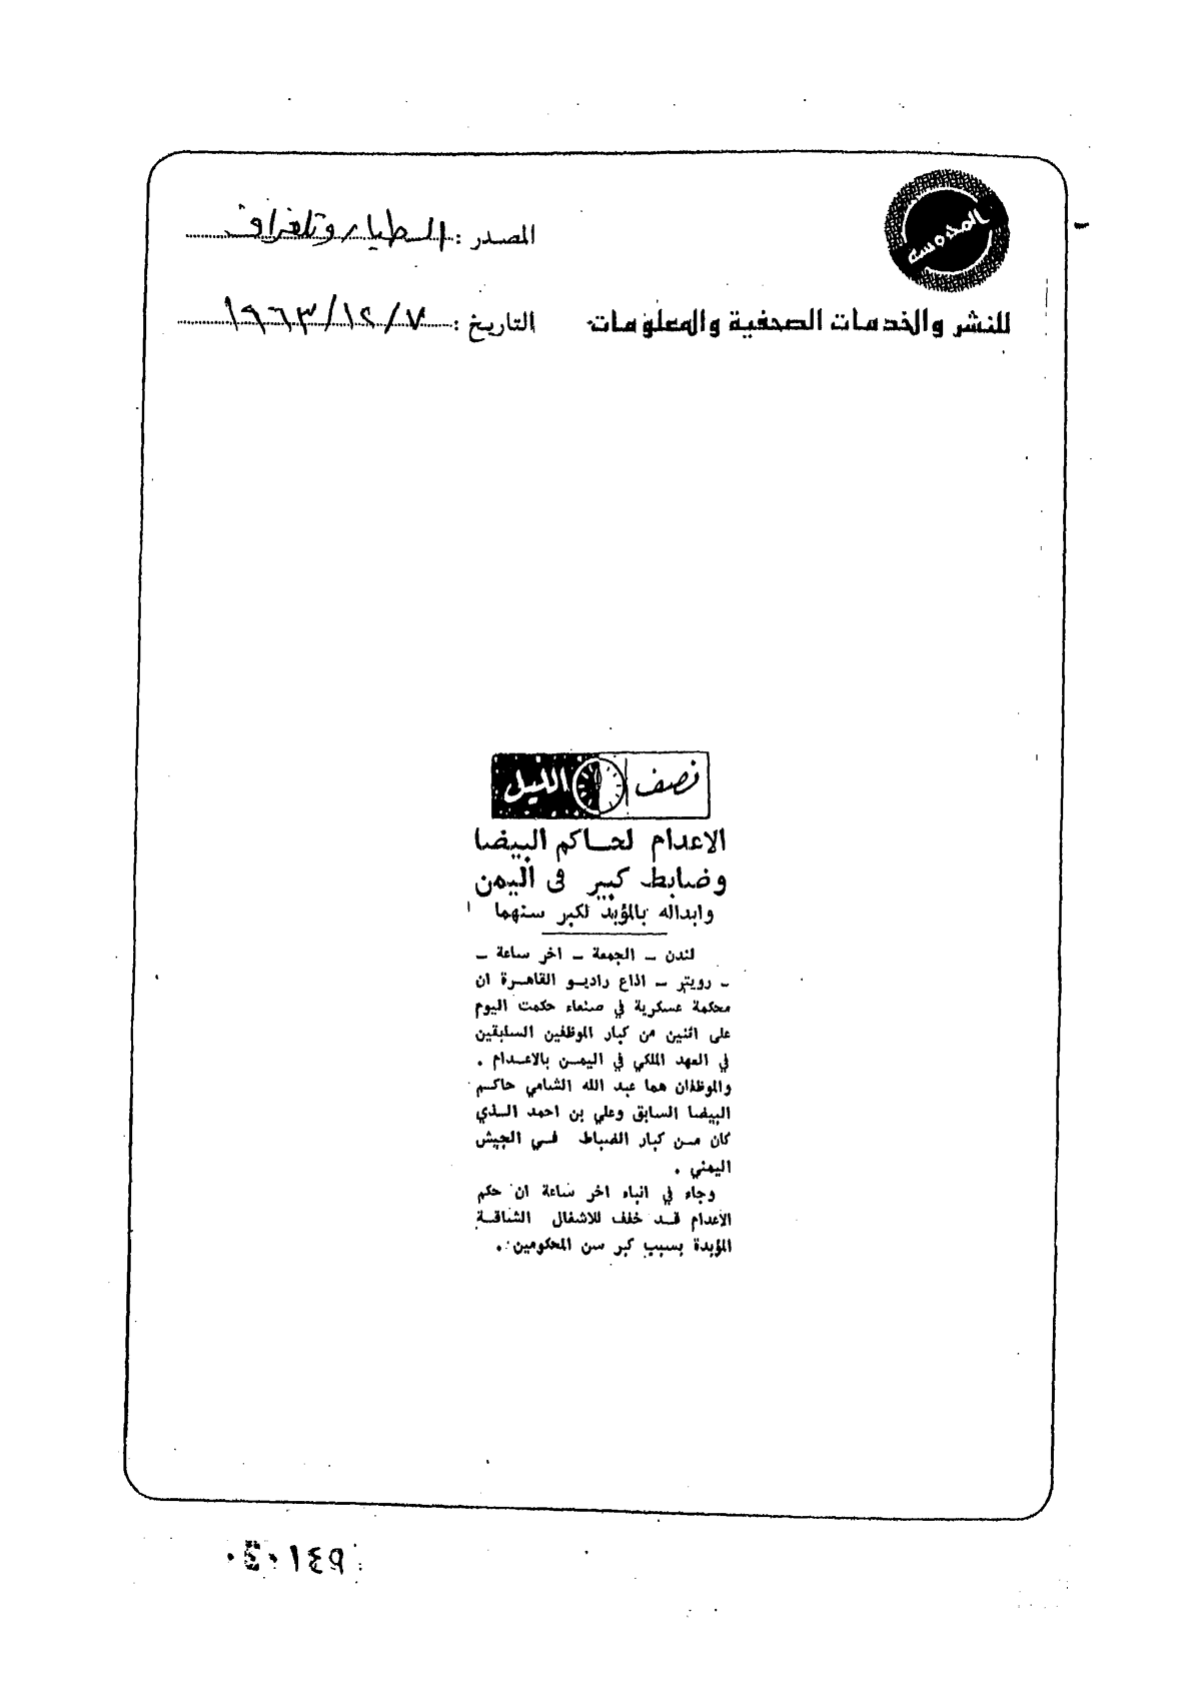 المحروسة
المصدر : الطيار وتلغراف
للنشر والخدمات الصحفية والمعلومات
التاريخ : ١٩٦٣/١٢/٧
نصف الليل
الاعدام لحاكم البيضا
وضابط كبير فى اليمن
وابداله بالمؤبد لكبر سنهما
لندن – الجمعة – اخر ساعة –
– رويتر – اذاع راديو القاهرة ان
محكمة عسكرية في صنعاء حكمت اليوم
على اثنين من كبار الموظفين السابقين
في العهد الملكي في اليمن بالاعدام .
والموظفان هما عبد الله الشامي حاكم
البيضا السابق وعلي بن احمد الذي
كان من كبار الضباط في الجيش
اليمني .
وجاء في انباء اخر ساعة ان حكم
الاعدام قد خفف للاشغال الشاقة
المؤبدة بسبب كبر سن المحكومين .